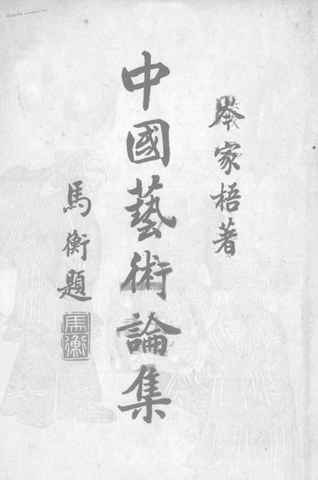 岑家梧著
中國藝術論集
馬衡題
馬衡